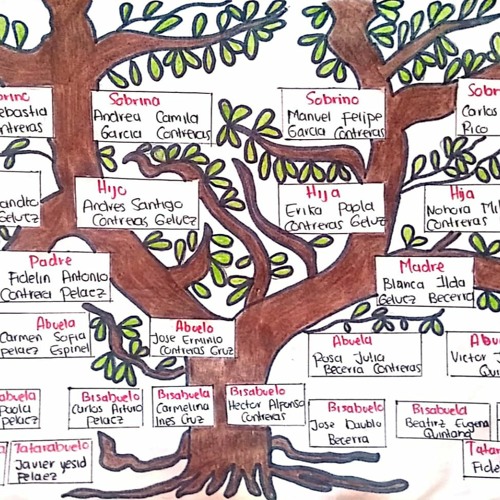 Sobrina
Andrea Camila
Garcia Contreras
Sobrino
Manuel Felipe
Garcia Contreras
Carlos
Rico
Hijo
Andres Santigo
Contreras Geluez
Hija
Erika Paola
Contreras Geluz
Hija
Nohora
Contreras
Padre
Fidelin Antonio
Contreei Pelaez
Madre
Blanca Ilda
Geluez Becerra
Abuela
Carmen Sofia
pelaez Espinel
Abuelo
Jose Erminio
Contreras Cruz
Abuela
Rosa Julia
Becerra Contreras
Victor
Bisabuelo
Carlos Arturo
Pelaez
Bisabuela
Carmelina
Ines Cruz
Bisabuelo
Hector Alfonso
Contreras
Bisabuelo
Jose Daublo
Becerra
Bisabuela
Beatriz Eugena
Quintana
Tatarabuelo
Javier yesid
Pelaez